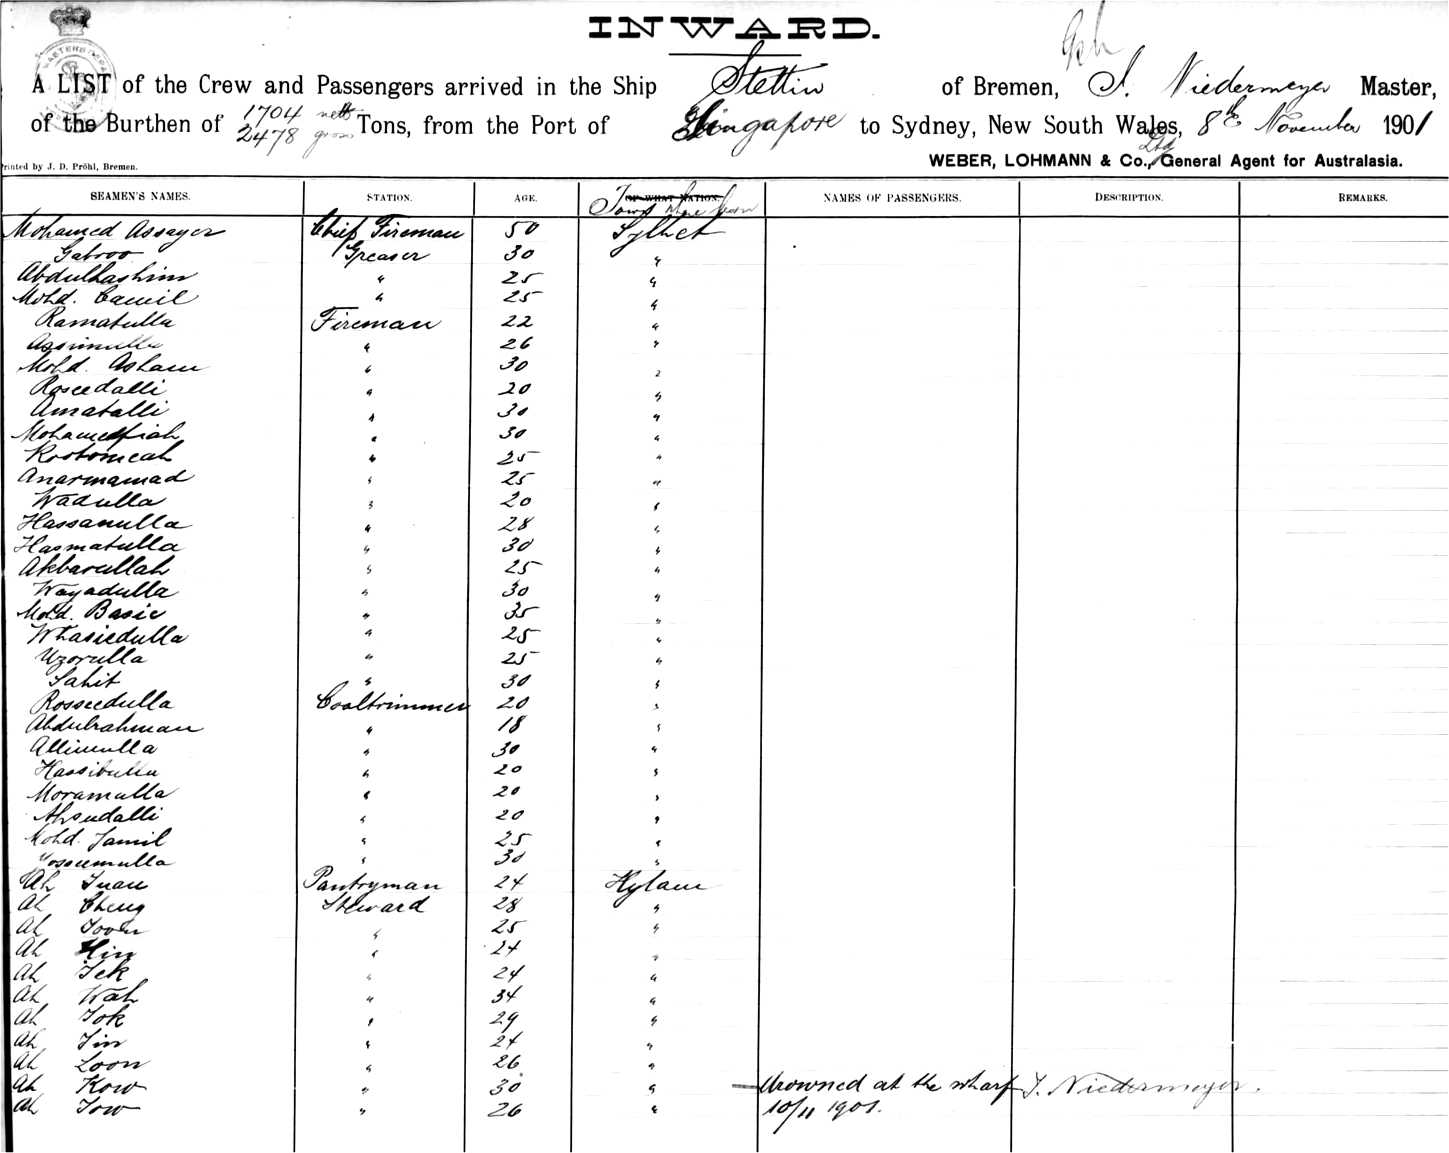 INWARD.
A LIST of the Crew and Passengers arrived in the Ship Stettin of Bremen, Niedermeyer Master,
of the Burthen of 1704 nett 2478 gross Tons, from the Port of Singapore to Sydney, New South Wales, 8th November 1901
Printed by J. D. Pröhl, Bremen.
WEBER, LOHMANN & Co., Ltd General Agent for Australasia.
SEAMEN'S NAMES. STATION. AGE. OF WHAT NATION. Town where born NAMES OF PASSENGERS. DESCRIPTION. REMARKS.
Mohamed Assayer Chief Fireman 50 Sylhet
Gabroo Greaser 30 "
Abdulhashim " 25 "
Mohd. Camil " 25 "
Ramatulla Fireman 22 "
Assimulla " 26 "
Mohd. Asham " 30 "
Roseedalli " 20 "
Amatalli " 30 "
Mohamedfiah " 30 "
Rostomeah " 25 "
Anarmamad " 25 "
Wadulla " 20 "
Hassanulla " 28 "
Hasmatulla " 30 "
Akbarullah " 25 "
Wayadulla " 30 "
Mohd. Basie " 35 "
Whasiedulla " 25 "
Uzorulla " 25 "
Sahit " 30 "
Rosseedulla Coaltrimmer 20 "
Abdulrahman " 18 "
Allimulla " 30 "
Hassibulla " 20 "
Moramulla " 20 "
Ahsudalli " 20 "
Mohd. Jamil " 25 "
Yossemulla " 30 "
Ah Juan Pantryman 24 Hylam
Ah Cheng Steward 28 "
Ah Toon " 25 "
Ah Hin " 24 "
Ah Tek " 24 "
Ah Wah " 34 "
Ah Tok " 29 "
Ah Tin " 24 "
Ah Loon " 26 "
Ah Kow " 30 " — Drowned at the wharf Niedermeyer.
Ah Tow " 26 " 10/11 1901.